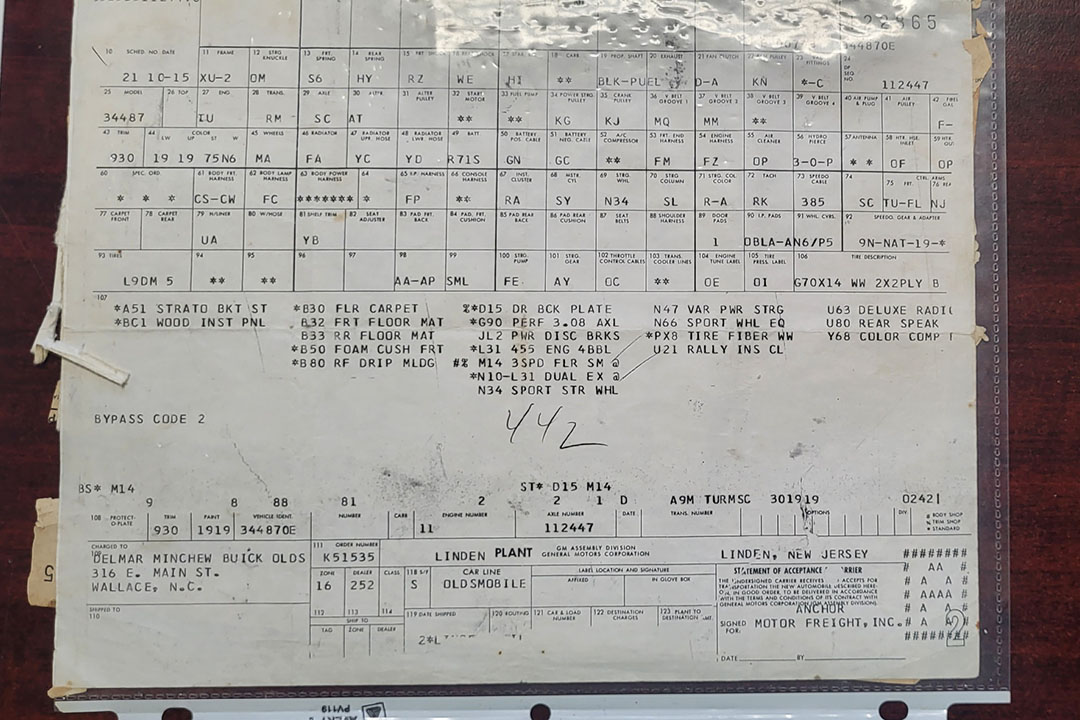 22865
44870E
10 SCHED. NO DATE 11 FRAME 12 STRG KNUCKLE 13 FRT. SPRING 14 REAR SPRING 18 CARB 19 PROP. SHAFT 20 EXHAUST 21 FAN CLUTCH
21 10-15 XU-2 OM S6 HY RZ WE HI ** BLK-PUEL D-A KN *-C 112447
25 MODEL 26 TOP 27 ENG 28 TRANS. 29 AXLE 31 ALTER PULLEY 32 START MOTOR 33 FUEL PUMP 34 POWER STRG PULLEY 35 CRANK PULLEY 36 V BELT GROOVE 1 37 V BELT GROOVE 2 38 V BELT GROOVE 3 39 V BELT GROOVE 4 40 AIR PUMP & PLUG 41 AIR PULLEY
34487 IU RM SC AT ** ** KG KJ MQ MM ** F-
43 TRIM 44 LW UP COLOR ST W 45 WHEELS 46 RADIATOR 47 RADIATOR UPR HOSE 48 RADIATOR LWR. HOSE 49 BATT 50 BATTERY POS CABLE 51 BATTERY NEG. CABLE 52 A/C COMPRESSOR 53 FRT. END HARNESS 54 ENGINE HARNESS 55 AIR CLEANER 56 HYDRO PIERCE 57 ANTENNA 58 HTR. HSE. INLET
930 19 19 75N6 MA FA YC YD R71S GN GC ** FM FZ OP 3-O-P * * OF OP
60 SPEC. ORD. 61 BODY FRT. HARNESS 62 BODY LAMP HARNESS 63 BODY POWER HARNESS 64 65 I.P. HARNESS 66 CONSOLE HARNESS 67 INST. CLUSTER 68 MSTR. CYL 69 STRG. WHL 70 STRG COLUMN 71 STRG. COL. COLOR 72 TACH 73 SPEEDO CABLE 74 75 FRT. CTRL. ARMS 76 REP
* * * CS-CW FC ******* * FP ** RA SY N34 SL R-A RK 385 SC TU-FL NJ
77 CARPET FRONT 78 CARPET REAR 79 H/LINER 80 W/HOSE 81 SHELF TRIM 82 SEAT ADJUSTER 83 PAD FRT. BACK 84 PAD. FRT. CUSHION 85 PAD REAR BACK 86 PAD REAR CUSHION 87 SEAT BELTS 88 SHOULDER HARNESS 89 DOOR PADS 90 I.P. PADS 91 WHL. CVRS. 92 SPEEDO. GEAR & ADAPTER
UA YB 1 OBLA-AN6/P5 9N-NAT-19-*
93 TIRES 94 95 96 97 98 99 100 STRG. PUMP 101 STRG. GEAR 102 THROTTLE CONTROL CABLES 103 TRANS. COOLER LINES 104 ENGINE TUNE LABEL 105 TIRE PRESS. LABEL 106 TIRE DESCRIPTION
L9DM 5 ** ** AA-AP SML FE AY OC ** OE OI G70X14 WW 2X2PLY B
107
*A51 STRATO BKT ST *B30 FLR CARPET %*D15 DR BCK PLATE N47 VAR PWR STRG U63 DELUXE RADI
*BC1 WOOD INST PNL B32 FRT FLOOR MAT *G90 PERF 3.08 AXL N66 SPORT WHL EQ U80 REAR SPEAK
B33 RR FLOOR MAT JL2 PWR DISC BRKS *PX8 TIRE FIBER WW Y68 COLOR COMP
*B50 FOAM CUSH FRT *L31 455 ENG 4BBL U21 RALLY INS CL
*B80 RF DRIP MLDG #% M14 3SPD FLR SM @
*N10-L31 DUAL EX @
N34 SPORT STR WHL
442
BYPASS CODE 2
BS* M14 ST* D15 M14
9 8 88 81 2 2 1 D A9M TURMSC 301919 0242
108 PROTECT-O-PLATE TRIM PAINT VEHICLE IDENT. NUMBER CARB ENGINE NUMBER AXLE NUMBER DATE TRANS. NUMBER OPTIONS DIV. # BODY SHOP % TRIM SHOP * STANDARD
930 1919 344870E 11 112447
CHARGED TO
DELMAR MINCHEW BUICK OLDS
316 E. MAIN ST.
WALLACE, N.C.
SHIPPED TO
110
111 ORDER NUMBER
K51535
ZONE DEALER CLASS
16 252
112 113 114
SHIP TO
TAG ZONE DEALER
LINDEN PLANT GM ASSEMBLY DIVISION GENERAL MOTORS CORPORATION LINDEN, NEW JERSEY
118 S/P CAR LINE
S OLDSMOBILE
LABEL LOCATION AND SIGNATURE
AFFIXED IN GLOVE BOX
119 DATE SHIPPED 120 ROUTING 121 CAR & LOAD NUMBER 122 DESTINATION CHARGES 123 PLANT TO DESTINATION
2*L
STATEMENT OF ACCEPTANCE
THE UNDERSIGNED CARRIER RECEIVES ACCEPTS FOR
TRANSPORTATION THE NEW AUTOMOBILE DESCRIBED HERE-
ON, IN GOOD ORDER, TO BE DELIVERED IN ACCORDANCE
WITH THE TERMS AND CONDITIONS OF ITS CONTRACT WITH
GENERAL MOTORS CORPORATION (GM ASSEMBLY DIVISION).
ANCHOR
SIGNED FOR: MOTOR FREIGHT, INC.
DATE BY
########
# AA #
# A A #
# AAAA #
# A A #
# A A #
########
2
5
PV119